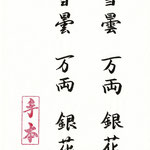 曇 万両 銀花
曇 万両 銀花
手本